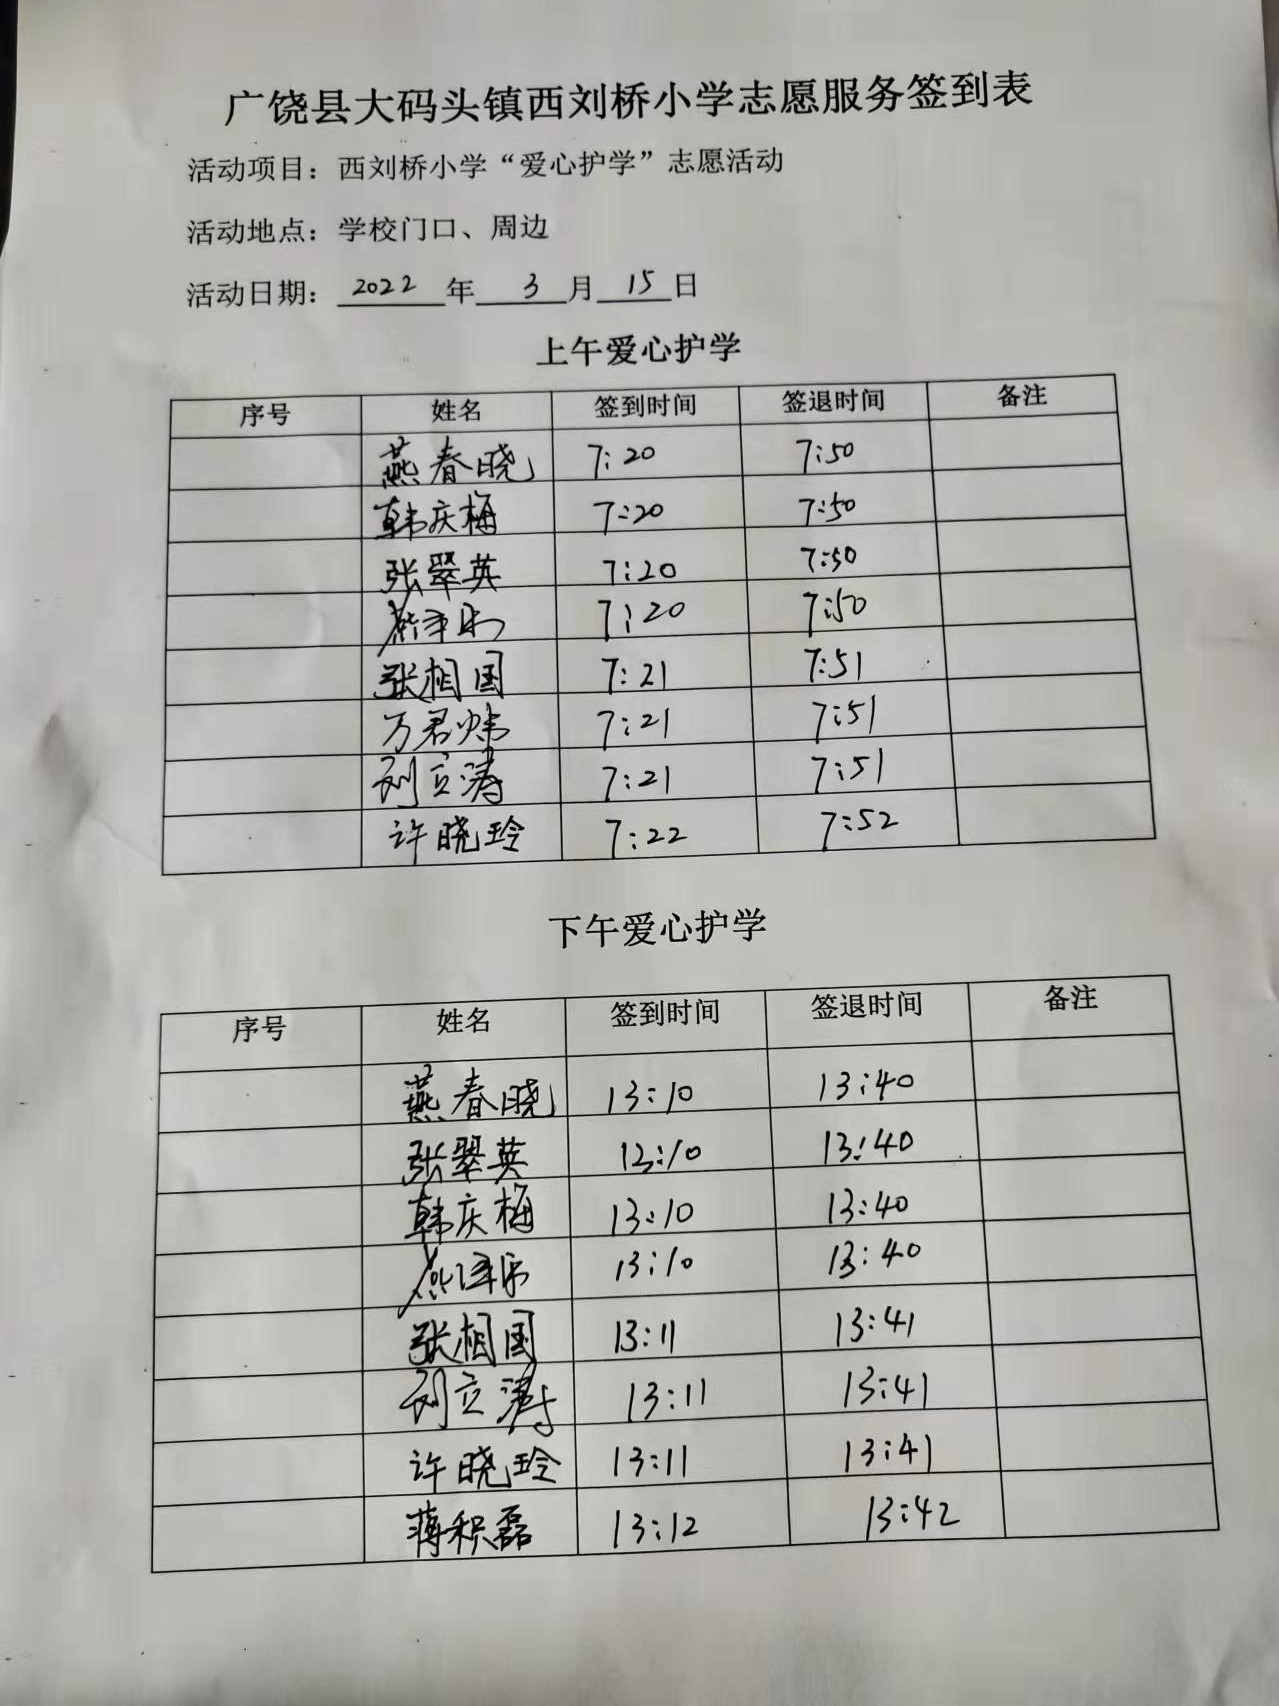 广饶县大码头镇西刘桥小学志愿服务签到表
活动项目：西刘桥小学“爱心护学”志愿活动
活动地点：学校门口、周边
活动日期：2022年3月15日
上午爱心护学
序号 姓名 签到时间 签退时间 备注
燕春晓 7:20 7:50
韩庆梅 7:20 7:50
张翠英 7:20 7:50
7:20 7:50
张相国 7:21 7:51
万君炜 7:21 7:51
刘立涛 7:21 7:51
许晓玲 7:22 7:52
下午爱心护学
序号 姓名 签到时间 签退时间 备注
燕春晓 13:10 13:40
张翠英 13:10 13:40
韩庆梅 13:10 13:40
13:10 13:40
张相国 13:11 13:41
刘立涛 13:11 13:41
许晓玲 13:11 13:41
蒋积磊 13:12 13:42